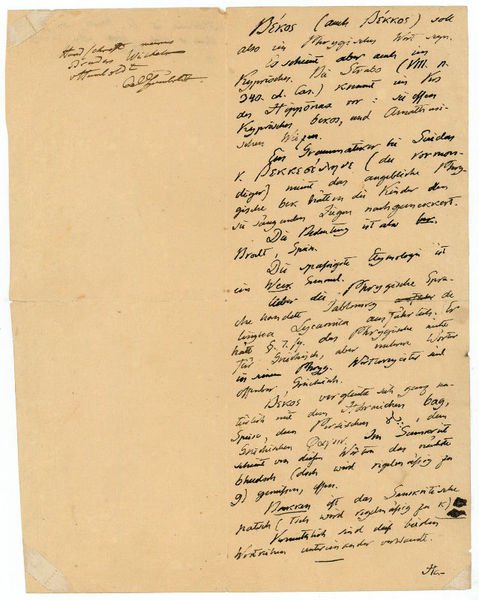 Handschrift meines
Bruders Wilhelm
v Humboldt
AvHumboldt
Βέκος (auch Βέκκος) soll
also ein Phrygisches Wort seyn.
Es scheint aber auch ein
Kyprisches. Die Strabo (VIII. p.
340. ed. Cas.) kommt ein Vers
des Hipponax vor: sie assen
Kyprisches bekos, und Amathusi-
schen Waizen.
Ein Grammatiker bei Suidas
v. Βεκκεσέληνε (die vormon-
diger) meint das angebliche Phry-
gische bek hätten die Kinder den
sie säugenden Ziegen nachgemeckert.
Die Bedeutung ist also
Brodt, Speise.
Die spasshafteste Etymologie ist
ein Semmel.
Ueber die Phrygische Spra-
che handelt Jablonsky de
lingua Lycaonica ausführlich. Er
hält das Phrygische nicht
für Griechisch, aber mehrere Wörter
in einem Phryg. Wörterverzeichniss sind
offenbar Griechisch.
Βέκος vergleicht sich ganz na-
türlich mit dem bag,
Speise, dem Persischen dem
Griechischen φαγεῖν. Im Sanscrit
scheint von diesen Wörtern das nächste
bhadsch (dsch wird regelmässig zu
g) geniessen, essen.
Backen ist das Sanskritische
patsch (tsch wird regelmässig zu k)
Vermuthlich sind diese beiden
Wortreihen unter einander verwandt.